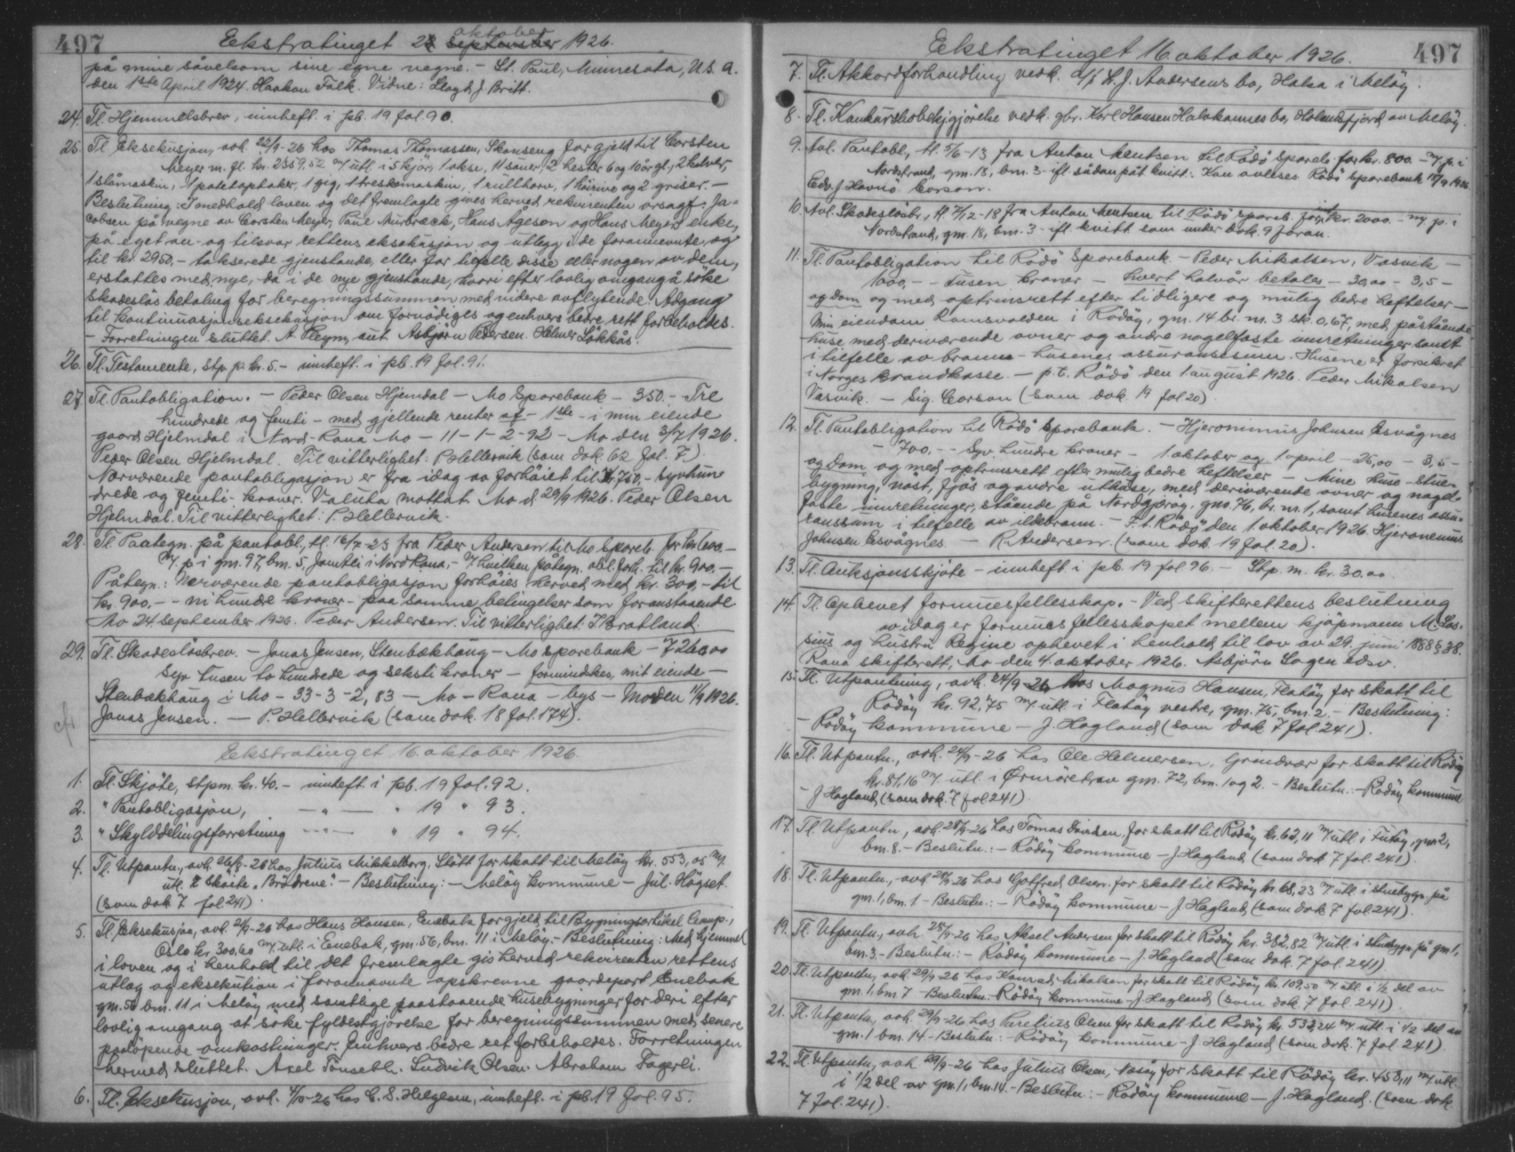 497
Ekstratinget 2 oktober 1926.
på mine såvelsom sine egne vegne. - St. Paul, Minnesota, U.S.A.
den 1ste April 1924. Haakon Falk. Vidne: J. Britt.
24. Tl. Hjemmelsbrev, innheft. i pb. 19 fol. 90.
25. Tl. Eksekusjon, avh. 22/9-26 hos Thomas Thomassen, Skonseng for gjeld til Carsten
Meyer m. fl. kr. 2859.52 m/ utl. i 5 kjör, 1 okse, 11 sauer, 2 hester 6 og 10 år gl., 2 kalver,
1 slåmaskin, 1 potetoptaker, 1 gig, 1 treskemaskin, 1 rive og 2 griser. -
Beslutning: I medhold av loven og det fremlagte gives herved rekvirenten orsagf. Ja-
cobsen på vegne av Carsten Meyer, Hans Ågeson og Hans Meyers enke,
på eget an- og tilsvar rettens eksekusjon og utlegg i de forannevnte og
til kr. 2950.- takserede gjenstande, eller for tilfelle disse eller nogen av dem,
erstattes med nye, da i de nye gjenstande, hvori efter lovlig omgang å söke
skadeslös betaling for beregningssummen med videre avflytende. Adgang
til kontinuasjonseksekusjon om fornödiges og enhvers bedre rett forbeholdes.
- Forretningen sluttet. A. Pleym, aut. Asbjörn Pedersen. Helmer Lökkås.
26. Tl. Testamente, stp. p. kr. 5.- innheft. i pb. 19 fol. 91.
27. Tl. Pantobligation. - Peder Olsen Hjemdal - Mo Sparebank - 350.- Tre
hundrede og femti - med gjellende renter af - 1ste - i min eiende
gaard Hjelmdal i Nord-Rana Mo - 11-1-2-92 - Mo den 3/7 1926.
Peder Olsen Hjelmdal. Til vitterlighet: P. Hellervik (som dok. 62 fol. 7).
Nærværende pantobligasjon er fra idag av forhöiet til kr. 750.- syvhun-
drede og femti - kroner. Valuta mottat. Mo d. 29/9 1926. Peder Olsen
Hjelmdal. Til vitterlighet: P. Hellervik.
28. Tl. Paategn. på pantobl., tl. 16/7-23 fra Peder Andersen til Mo Spareb. for kr. 600.-
m/ p. i gm. 97, bm. 5, i Nord Rana, - v/ hvilken påtegn. obl. forh. til kr. 900.-
Påtegn.: Nærværende pantobligasjon forhöies herved med kr. 300.- til
kr. 900.- - ni hunde kroner - paa samme betingelser som foranstaaende
Mo 24. september 1926. Peder Andersen. Til vitterlighet: Bratland.
29. Tl. Skadeslösbrev. - Jonas Jensen, Stenbækhaug - Mo Sparebank - 7260.00
Syv tusen to hundrede og seksti kroner - mit eiende -
Stenbækhaug i Mo - 33-3-2,83 - Mo - Rana - bygs - Mo den 11/9 1926.
Jonas Jensen. - P. Hellervik (som dok. 18 fol. 174).
Ekstratinget 16 oktober 1926.
1. Tl. Skjöte, stpm. kr. 40.- innheft. i pb. 19 fol. 92.
2. " Pantobligasjon, - " - " 19 " 93.
3. " Skylddelingsforretning - " - " 19 " 94.
4. Tl. Utpantn., avh. hos Julius Mikkelborg, Stött for skatt til Melöy kr. 553,05 m/
utl. i skoite "Brödrene". - Beslutning: - Melöy kommune - Jul. Högset.
(som dok. 7 fol. 241).
5. Tl. Eksekusjon, avh. hos Hans Hansen, Enebak for gjeld til Bygningsartikel Comp.,
Oslo kr. 300.60 m/ utl. i Enebak, gm. 56, bm. 11 i Melöy. - Beslutning: Med hjemmel
i loven og i henhold til det fremlagte gis herved rekvirenten rettens
utlæg og eksekution i forannævnte opskrevne gaardspart Enebak
gm. 56 bm. 11 i Melöy med samtlige paastaaende husebygninger for deri efter
lovlig omgang at söke fyldestgjörelse for beregningssummen med senere
paalöpende omkostninger. Enhvers bedre ret forbeholdes. Forretningen
hermed sluttet. Axel Tönseth. Ludvik Olsen. Abraham Fagerli.
6. Tl. Eksekusjon, avh. 4/10-26 hos C. S. Helgesen, innheft. i pb. 19 fol. 95.
Ekstratinget 16 oktober 1926.
497
7. Tl. Akkordforhandling vedk. H. J. Andersens bo, Halsa i Melöy.
8. Tl. Konkursbobekjgjörelse vedk. gbr. Karl Hansen Halskannes bo, Holandsfjord av Melöy.
9. Avl. Pantobl., tl. 5/6-13 fra Anton Knutsen til Rödö Spareb. for kr. 800.- m/ p. i
Nordstrand, gm. 18, bm. 3 - ifl. sådan påt. kvitt: Kan avlæses Rödö Sparebank 1926
Edv. J. Havnö Corson.
10. Avl. Skadeslösbr., tl. 7/2-18 fra Anton Knutsen til Rödö spareb. for kr. 2000.- m/ p. i
Nordstrand, gm. 18, bm. 3 - ifl. kvitt. som under dok. 9 foran.
11. Tl. Pantobligation til Rödö Sparebank - Peder Mikalsen, Vasvik -
1000,- - Tusen kroner - hvert halvår betales - 30,00 - 3,5 -
og dom og med optrinsrett efter tidligere og mulig bedre heftelser -
Min eiendom Ramsvolden i Rödöy, gm. 14 br. nr. 3 sk. 0,67, med påstående
huse med deriværende ovner og andre nagelfaste innretninger samt
i tilfelle av brann - husenes assuransesum. Husene er forsikret
i Norges brandkasse. - p.t. Rödö den 1 august 1926. Peder Mikalsen
Vasvik. - Sig. Corson (som dok. 19 fol. 20)
12. Tl. Pantobligation til Rödö Sparebank. - Hjeronimus Johnsen Esvågnes
- 700,- - Syv hundre kroner - 1 oktober og 1 april - 25,00 - 3,5 -
og dom og med optrinsrett efter mulig bedre heftelser - Mine huse - stue-
bygning, nöst, fjös og andre uthuse, med deriværende ovner og nagel-
faste innretninger, stående på gm. br. nr. 1, samt husenes assu-
ransesum i tilfelle av ildebrann. - P.t. Rödö den 1 oktober 1926 Hjeronimus
Johnsen Esvågnes - R. Andersen. (som dok. 19 fol. 20).
13. Tl. Auksjonsskjöte - innheft. i pb. 19 fol. 96. - Stp. m. kr. 30.00.
14. Tl. Ophevet formuesfellesskap. - Ved skifterettens beslutning
av idag er formuesfellesskapet mellem kjöpmann M.
og hustru Regine ophevet i henhold til lov av 29. juni 1888 § 38.
Rana skifterett, Mo den 4. oktober 1926. Asbjörn Logen edsv.
15. Tl. Utpantning, avh. 24/9-26 hos Magnus Hansen, Flatöy for skatt til
Rödöy kr. 92,75 m/ utl. i Flatöy vestre, gm. 75, bm. 2. - Beslutning:
- Rödöy kommune - J. Hagland (som dok. 7 fol. 241).
16. Tl. Utpantn., avh. 24/9-26 hos Ole Helmersen, Grönsvær for skatt til Rödöy
kr. 87,16 m/ utl. i gm. 72, bm. 1 og 2. - Beslutn.: - Rödöy kommune
- J. Hagland (som dok. 7 fol. 241)
17. Tl. Utpantn., avh. 28/9-26 hos Tomas for skatt til Rödöy kr. 62,11 m/ utl. i gm. 2,
bm. 8. - Beslutn.: - Rödöy kommune - J. Hagland (som dok. 7 fol. 241).
18. Tl. Utpantn., avh. 28/9-26 hos Gotfred Olsen for skatt til Rödöy kr. 68,23 m/ utl. i stuebygn. på
gm. 1, bm. 1 - Beslutn.: - Rödöy kommune - J. Hagland (som dok. 7 fol. 241).
19. Tl. Utpantn., avh. 28/9-26 hos Aksel Andersen for skatt til Rödöy kr. 382,82 m/ utl. i stuebygn. på gm. 1,
bm. 3. - Beslutn.: - Rödöy kommune - J. Hagland (som dok. 7 fol. 241)
20. Tl. Utpantn., avh. 29/9-26 hos Konrad Mikalsen for skatt til Rödöy kr. 109,50 m/ utl. i 1/2 del av
gm. 1, bm. 7 - Beslutn.: Rödöy kommune - J. Hagland (som dok. 7 fol. 241).
21. Tl. Utpantn., avh. 29/9-26 hos Olsen for skatt til Rödöy kr. 532,24 m/ utl. i 1/2 del av
gm. 1 bm. 14. - Beslutn.: - Rödöy kommune - J. Hagland (som dok. 7 fol. 241).
22. Tl. Utpantn., avh. 29/9-26 hos Julius Olsen, for skatt til Rödöy kr. 458,11 m/ utl.
i 1/2 del av gm. 1, bm. 14. - Beslutn.: - Rödöy kommune - J. Hagland. (som dok.
7 fol. 241).